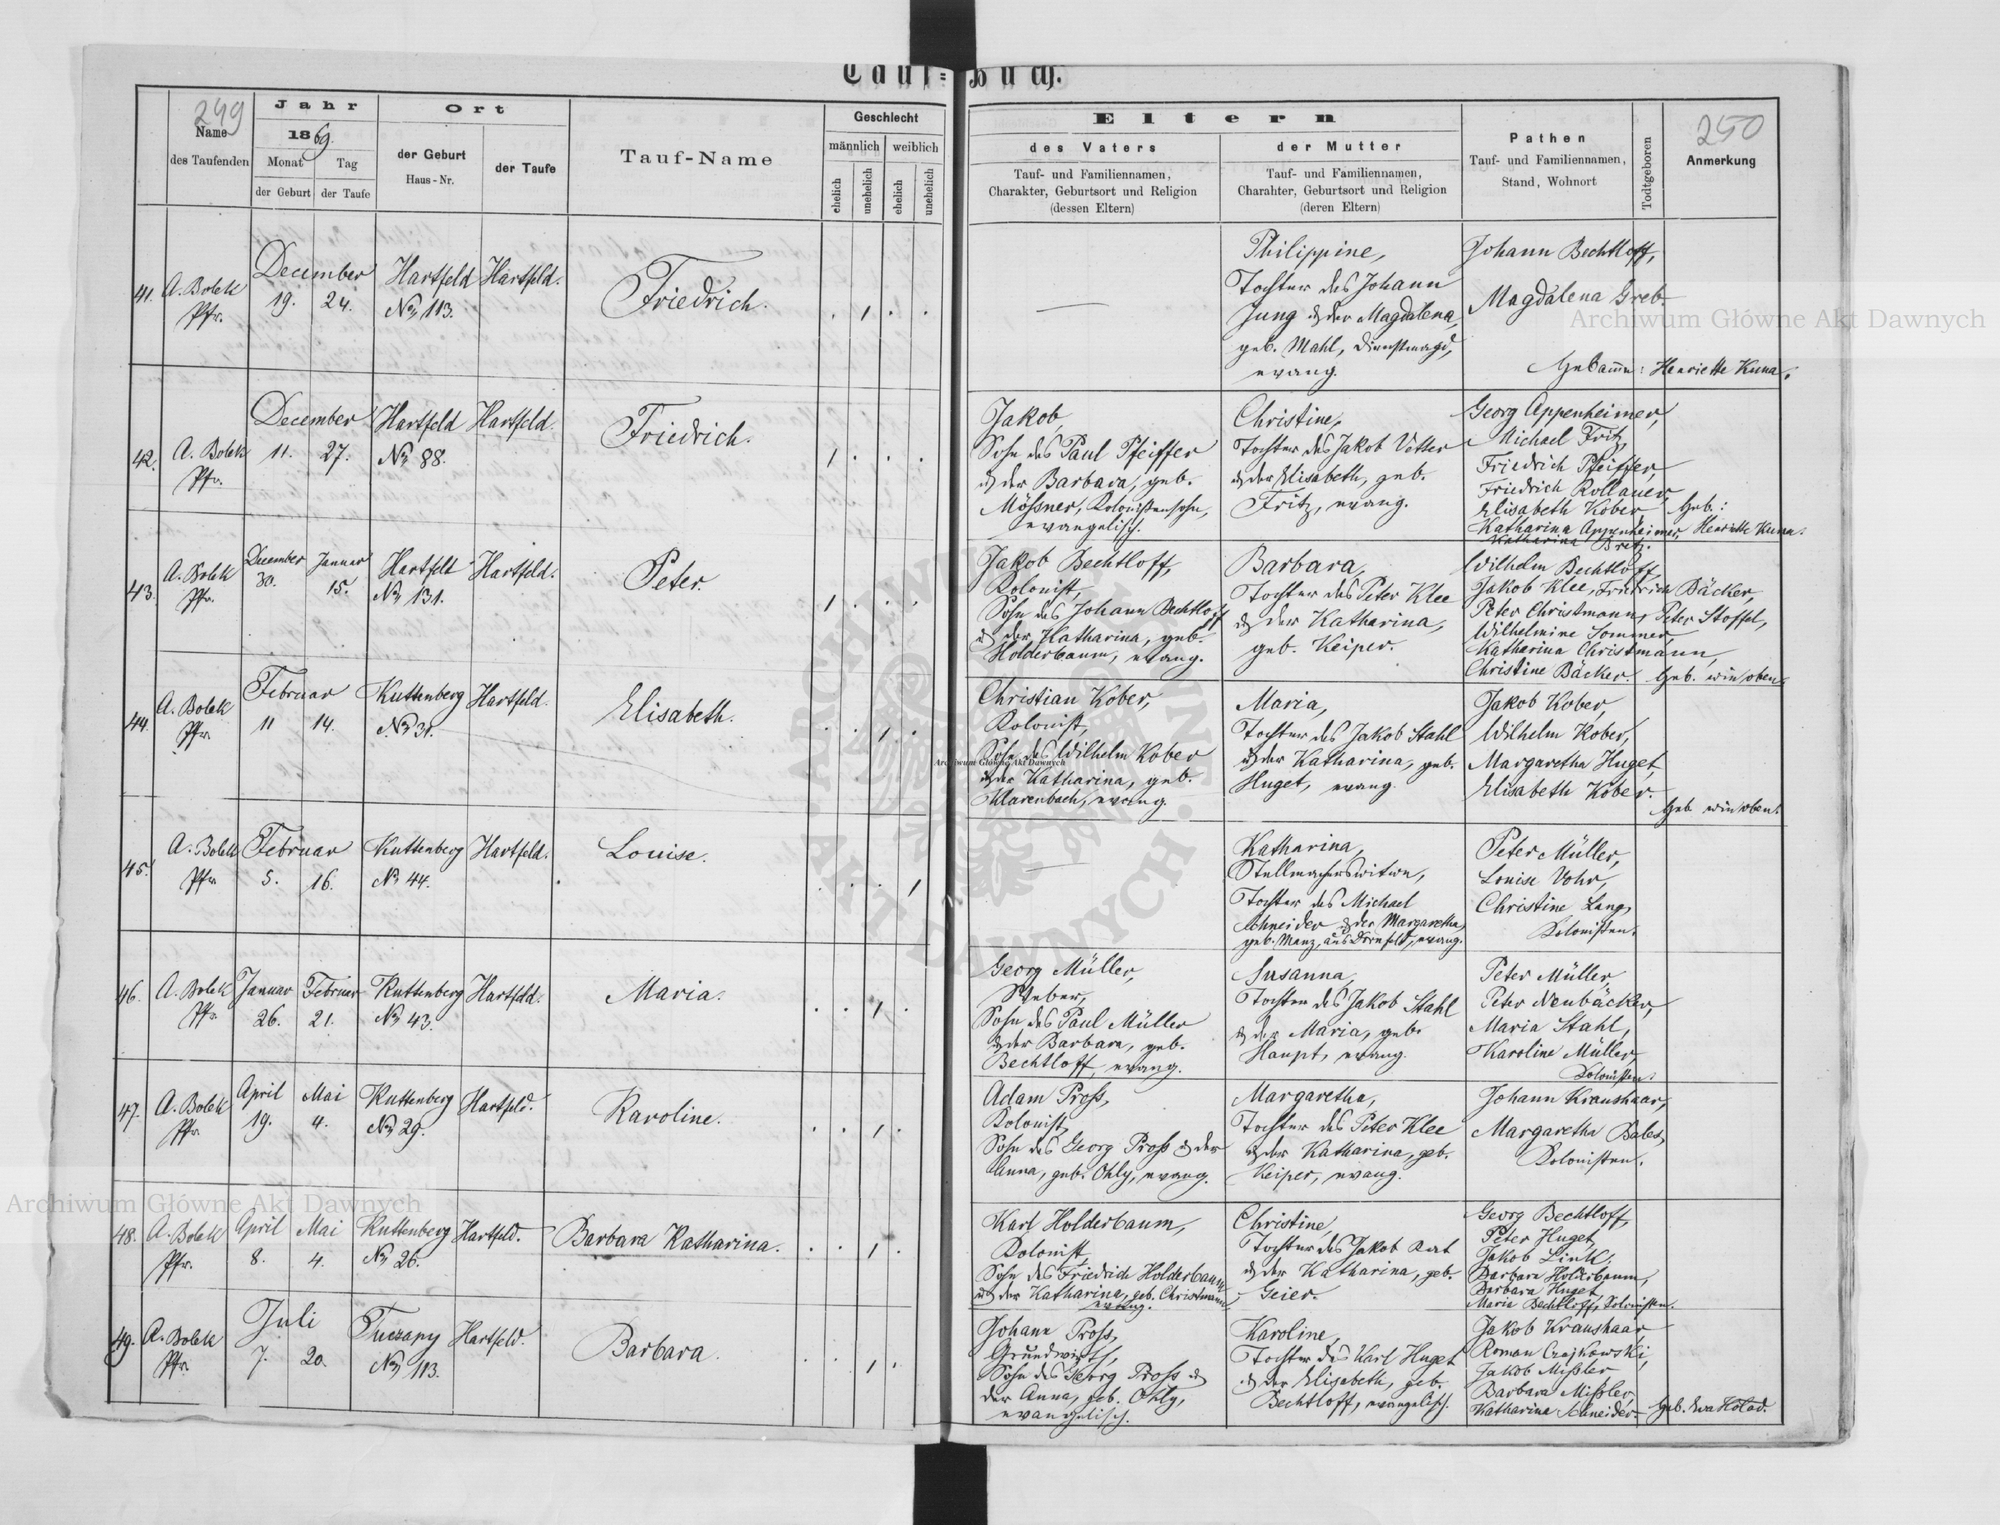 Tauf=Buch.
249
Name
des Taufenden
Jahr
1869.
Monat
Tag
der Geburt
der Taufe
Ort
der Geburt
Haus-Nr.
der Taufe
Tauf-Name
Geschlecht
männlich
weiblich
ehelich
unehelich
ehelich
unehelich
Eltern
des Vaters
Tauf- und Familiennamen,
Charakter, Geburtsort und Religion
(dessen Eltern)
der Mutter
Tauf- und Familiennamen,
Charahter, Geburtsort und Religion
(deren Eltern)
Pathen
Tauf- und Familiennamen,
Stand, Wohnort
Todtgeboren
250
Anmerkung
41.
A. Bolek
Pfr.
December
19. 24.
Hartfeld
No 113.
Hartfeld.
Friedrich.
Philippine,
Tochter des Johann
Jung & der Magdalena,
geb. Mahl, Dienstmagd,
evang.
Johann Bechtloff,
Magdalena Greb
Hebamme: Henriette Kuna.
42.
A. Bolek
Pfr.
December
11. 27.
Hartfeld
No 88.
Hartfeld.
Friedrich.
Jakob,
Sohn des Paul Pfeiffer
& der Barbara, geb.
Mößner, Kolonistensohn,
evangelisch.
Christine,
Tochter des Jakob Vetter
& der Elisabeth, geb.
Fritz, evang.
Georg Appenheimer,
Michael Fritz,
Friedrich Pfeiffer,
Friedrich Rollauer,
Elisabeth Kober
Katharina Appenheimer,
Katharina Bretz.
Heb.:
Henriette Kuna.
43.
A. Bolek
Pfr.
December
30.
Januar
15.
Hartfeld
No 131.
Hartfeld.
Peter.
Jakob Bechtloff,
Kolonist,
Sohn des Johann Bechtloff
& der Katharina, geb.
Holderbaum, evang.
Barbara,
Tochter des Peter Klee
& der Katharina,
geb. Keiper.
Wilhelm Bechtloff,
Jakob Klee, Friedrich Bäcker,
Peter Christmann, Peter Stoffel,
Wilhelmine Sommer,
Katharina Christmann,
Christine Bäcker.
Heb. wie oben.
44.
A. Bolek
Pfr.
Februar
11 14.
Kuttenberg
No 31.
Hartfeld.
Elisabeth.
Christian Kober,
Kolonist,
Sohn des Wilhelm Kober
& der Katharina, geb.
Klarenbach, evang.
Maria,
Tochter des Jakob Stahl
& der Katharina, geb.
Huget, evang.
Jakob Kober,
Wilhelm Kober,
Margaretha Huget,
Elisabeth Kober.
Heb wie oben.
45.
A. Bolek
Pfr.
Februar
5. 16.
Kuttenberg
No 44.
Hartfeld.
Louise.
Katharina,
Stellmacherswitwe,
Tochter des Michael
Schneider & der Margaretha,
geb. Manz, aus Dornfeld, evang.
Peter Müller,
Louise Vohr,
Christine Lang,
Kolonisten.
46.
A. Bolek
Pfr.
Januar
26.
Februar
21.
Kuttenberg
No 43.
Hartfeld.
Maria.
Georg Müller,
Weber,
Sohn des Paul Müller
& der Barbara, geb.
Bechtloff, evang.
Susanna,
Tochter des Jakob Stahl
& der Maria, geb.
Haupt, evang.
Peter Müller,
Peter Neubäcker,
Maria Stahl,
Karoline Müller
Kolonisten.
47.
A. Bolek
Pfr.
April
19.
Mai
4.
Kuttenberg
No 29.
Hartfeld.
Karoline.
Adam Proß,
Kolonist,
Sohn des Georg Proß & der
Anna, geb. Ohly, evang.
Margaretha,
Tochter des Peter Klee
& der Katharina, geb.
Keiper, evang.
Johann Kraushaar,
Margaretha Bales,
Kolonisten.
48.
A. Bolek
Pfr.
April
8.
Mai
4.
Kuttenberg
No 26.
Hartfeld.
Barbara Katharina.
Karl Holderbaum,
Kolonist,
Sohn des Friedrich Holderbaum
& der Katharina, geb. Christmann,
evang.
Christine,
Tochter des Jakob Rat
& der Katharina, geb.
Geier.
Georg Bechtloff,
Peter Huget,
Jakob Link,
Barbara Holderbaum,
Barbara Huget,
Maria Bechtloff, Kolonisten.
49.
A. Bolek
Pfr.
Juli
7. 20.
Tuczapy
No 113.
Hartfeld.
Barbara.
Johann Proß,
Grundwirth,
Sohn des Georg Proß &
der Anna, geb. Ohly,
evangelisch.
Karoline,
Tochter des Karl Huget
& der Elisabeth, geb.
Bechtloff, evangelisch.
Jakob Kraushaar
Roman Czajkowski,
Jakob Mißler
Barbara Mißler,
Katharina Schneider
Heb. Ewa Kolod.
Archiwum Główne Akt Dawnych
Archiwum Główne Akt Dawnych
Archiwum Główne Akt Dawnych
ARCHIWUM GŁÓWNE AKT DAWNYCH